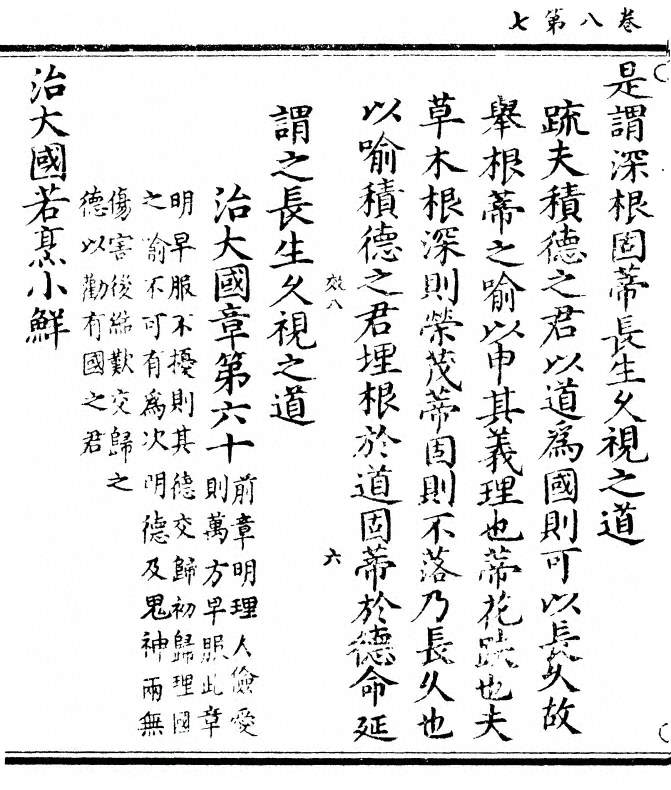 卷八第七
是謂深根固蒂長生久視之道
疏夫積德之君以道為國則可以長久故
舉根蒂之喻以申其義理也蒂花趺也夫
草木根深則榮茂蒂固則不落乃長久也
以喻積德之君埋根於道固蒂於德命延
八
六
謂之長生久視之道
治大國章第六十
前章明理人儉愛
則萬方早服此章
明早服不擾則其德交歸初歸理國
之喻不可有為次明德及鬼神兩無
傷害後結歎交歸之
德以勸有國之君
治大國若烹小鮮